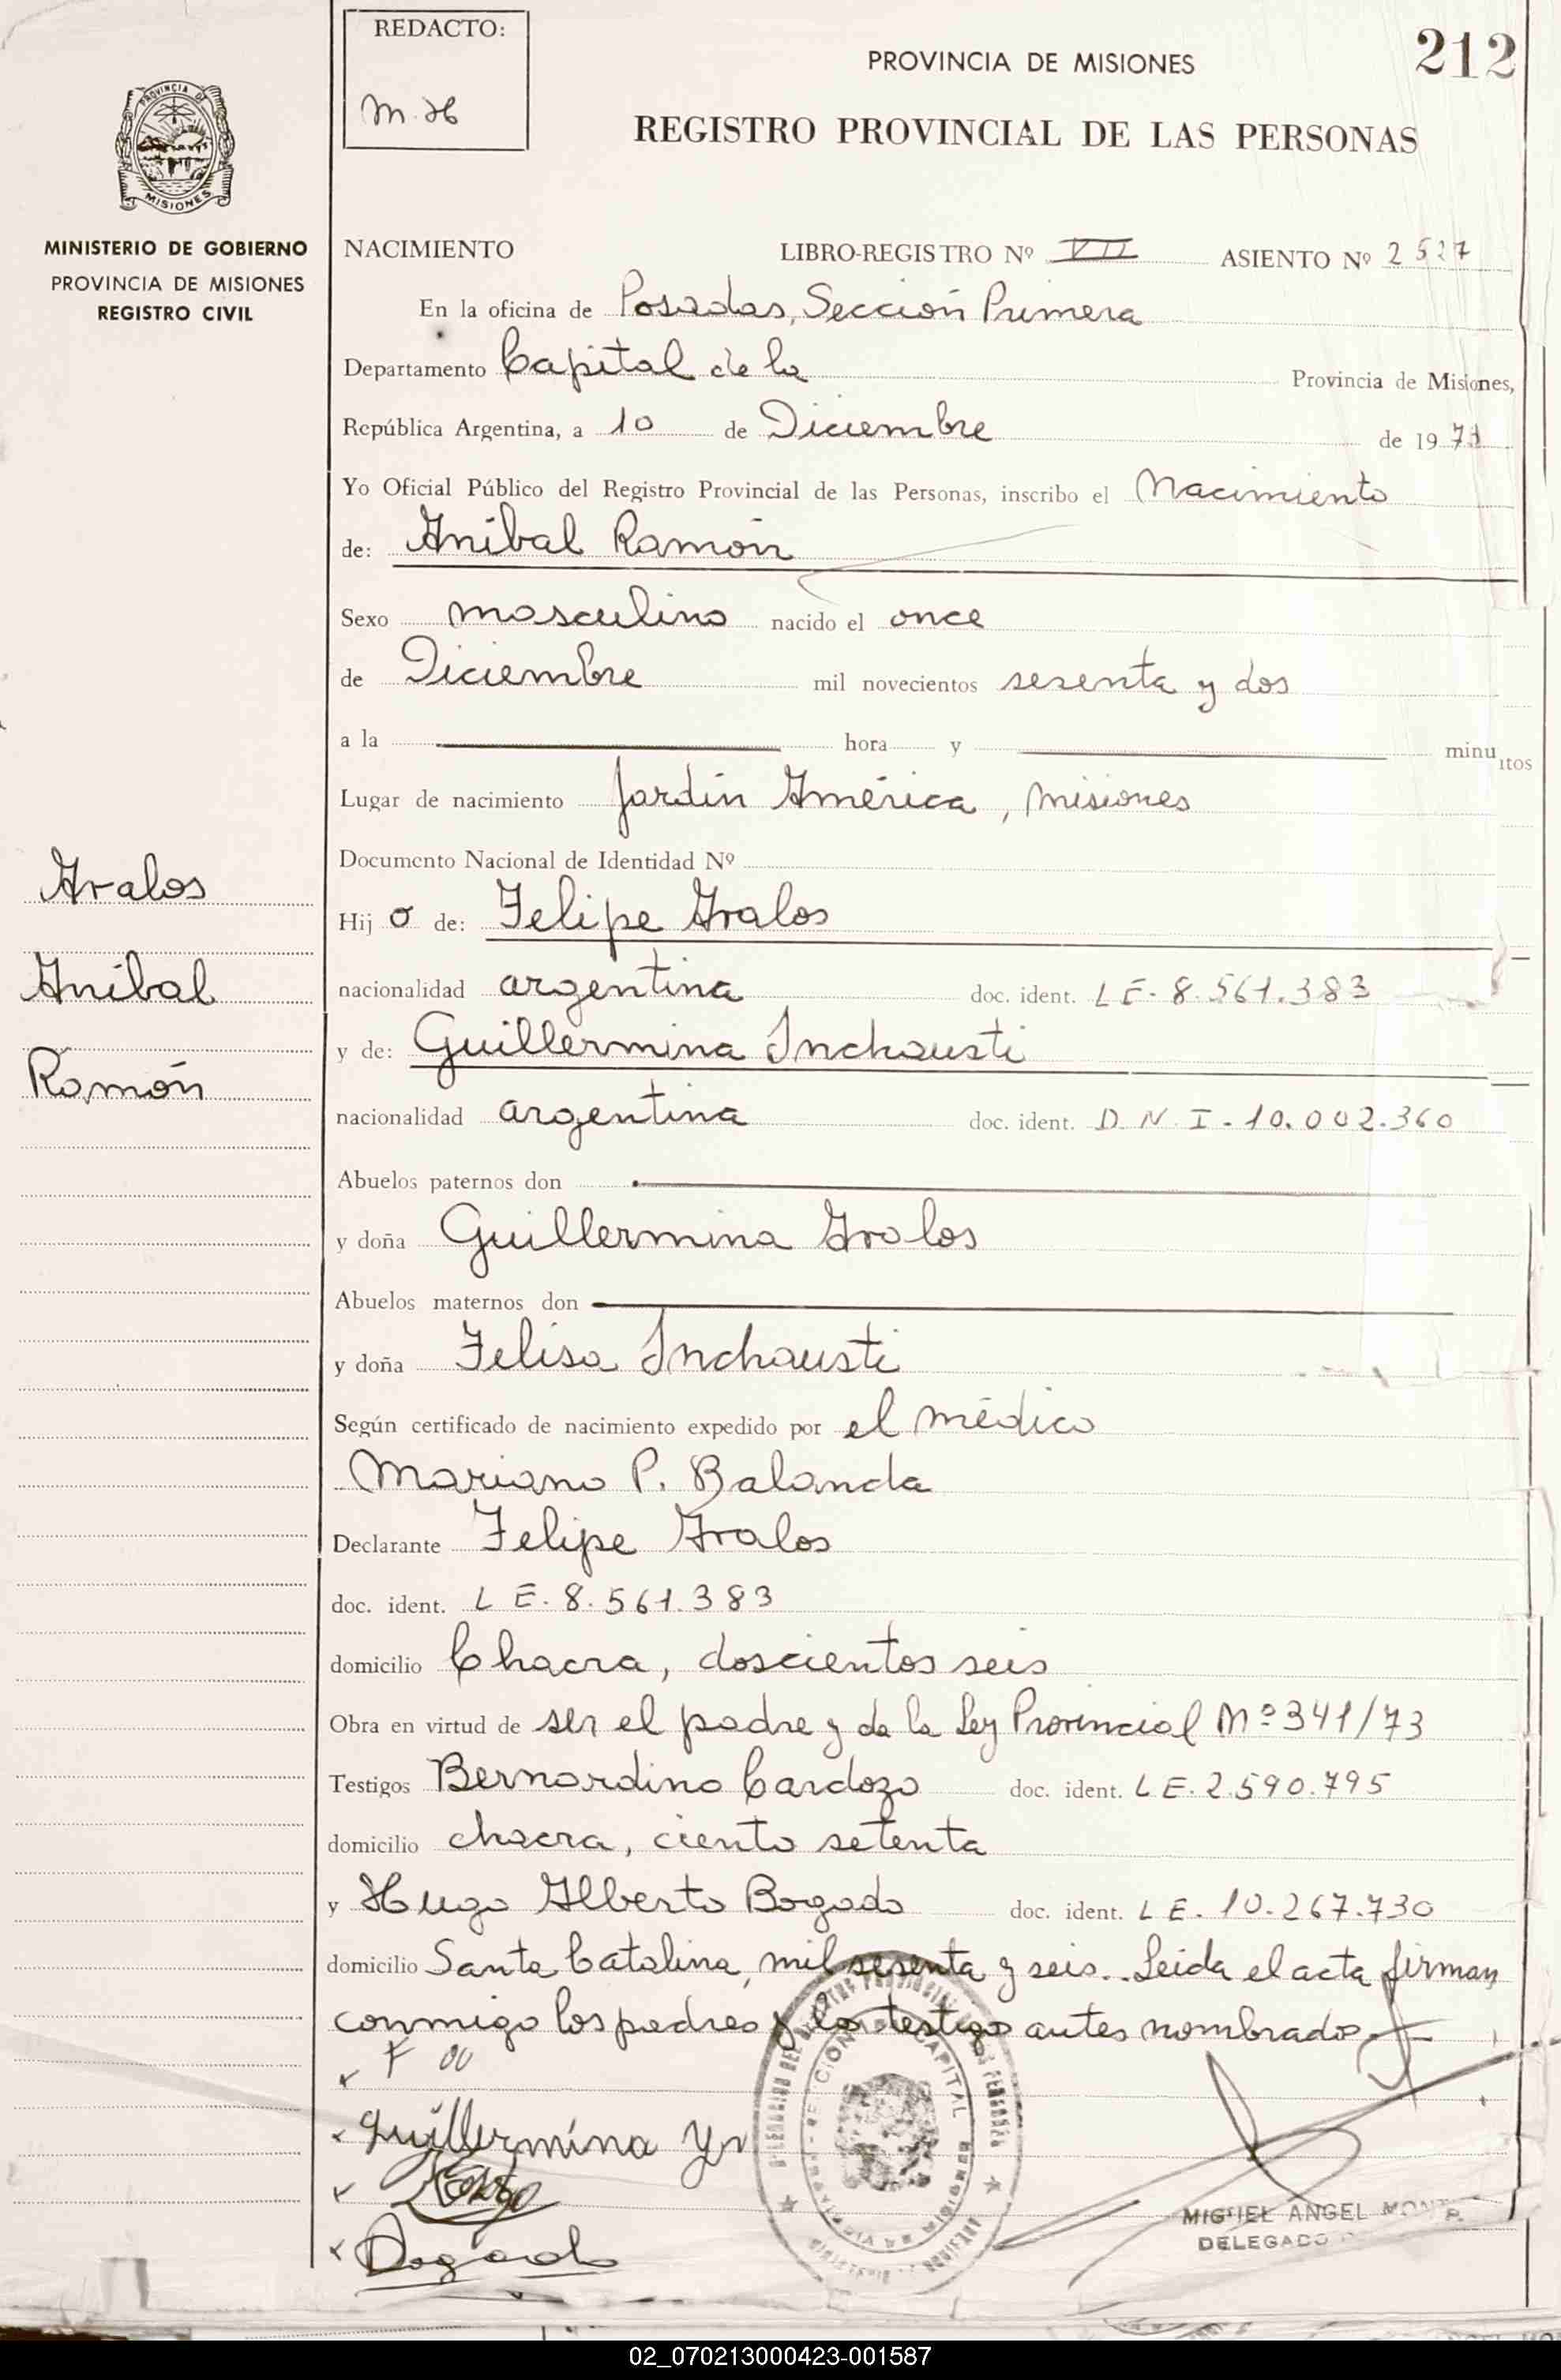 REDACTO:
M. H
PROVINCIA DE MISIONES
212
REGISTRO PROVINCIAL DE LAS PERSONAS
PROVINCIA DE
MISIONES
MINISTERIO DE GOBIERNO
PROVINCIA DE MISIONES
REGISTRO CIVIL
NACIMIENTO LIBRO-REGISTRO Nº VII ASIENTO Nº 2527
En la oficina de Posadas, Sección Primera
Departamento Capital de la Provincia de Misiones,
República Argentina, a 10 de Diciembre de 197
Yo Oficial Público del Registro Provincial de las Personas, inscribo el Nacimiento
de: Aníbal Ramón
Sexo masculino nacido el once
de Diciembre mil novecientos sesenta y dos
a la hora y minutos
Lugar de nacimiento Jardín América, Misiones
Documento Nacional de Identidad Nº
Avalos
Aníbal
Ramón
Hijo de: Felipe Avalos
nacionalidad argentina doc. ident. LE-8.561.383
y de: Guillermina Inchausti
nacionalidad argentina doc. ident. D.N.I-10.002.360
Abuelos paternos don
y doña Guillermina Avalos
Abuelos maternos don
y doña Felisa Inchausti
Según certificado de nacimiento expedido por el médico
Mariano P. Balanda
Declarante Felipe Avalos
doc. ident. LE-8.561.383
domicilio Chacra, doscientos seis
Obra en virtud de ser el padre y de la Ley Provincial Nº 341/73
Testigos Bernardino Cardozo doc. ident. LE.2.590.795
domicilio chacra, ciento setenta
y Hugo Alberto Bogado doc. ident. LE.10.267.730
domicilio Santa Catalina, mil sesenta y seis.. Leída el acta firman
conmigo los padres y los testigos antes nombrados
Guillermina Yn
Bogado
MIGUEL ANGEL
DELEGADO
02_070213000423-001587